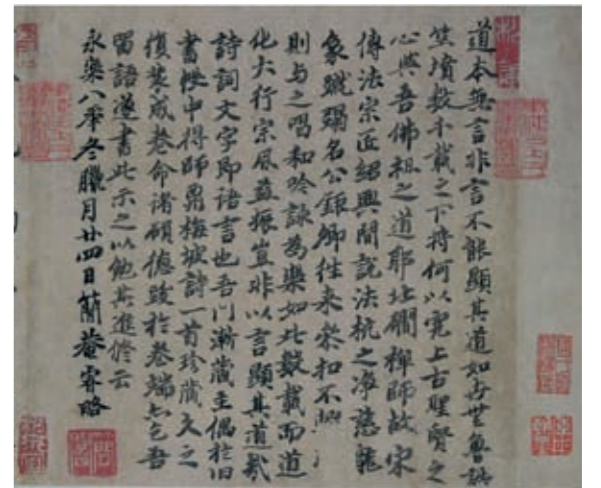 道本無言非言不能顯其道如毋世魯誥
竺墳數千載之下將何以究上古聖賢之
心與吾佛祖之道耶北磵禪師故宋
傳法宗匠紹興間説法杭之淨慈龍
象蹴蹋名公鉅卿往来參扣不
則与之唱和吟詠為樂如此數載而道
化大行宗風益振豈非以言顯其道歟
詩詞文字即語言也吾門漸藏主偶於旧
書中得師梅坡詩一首珍藏久之
復裝成卷命諸碩德跋於卷端亦乞吾
留語遂書此示之以勉其進脩云
永樂八年冬臘月廿四日蘭菴略